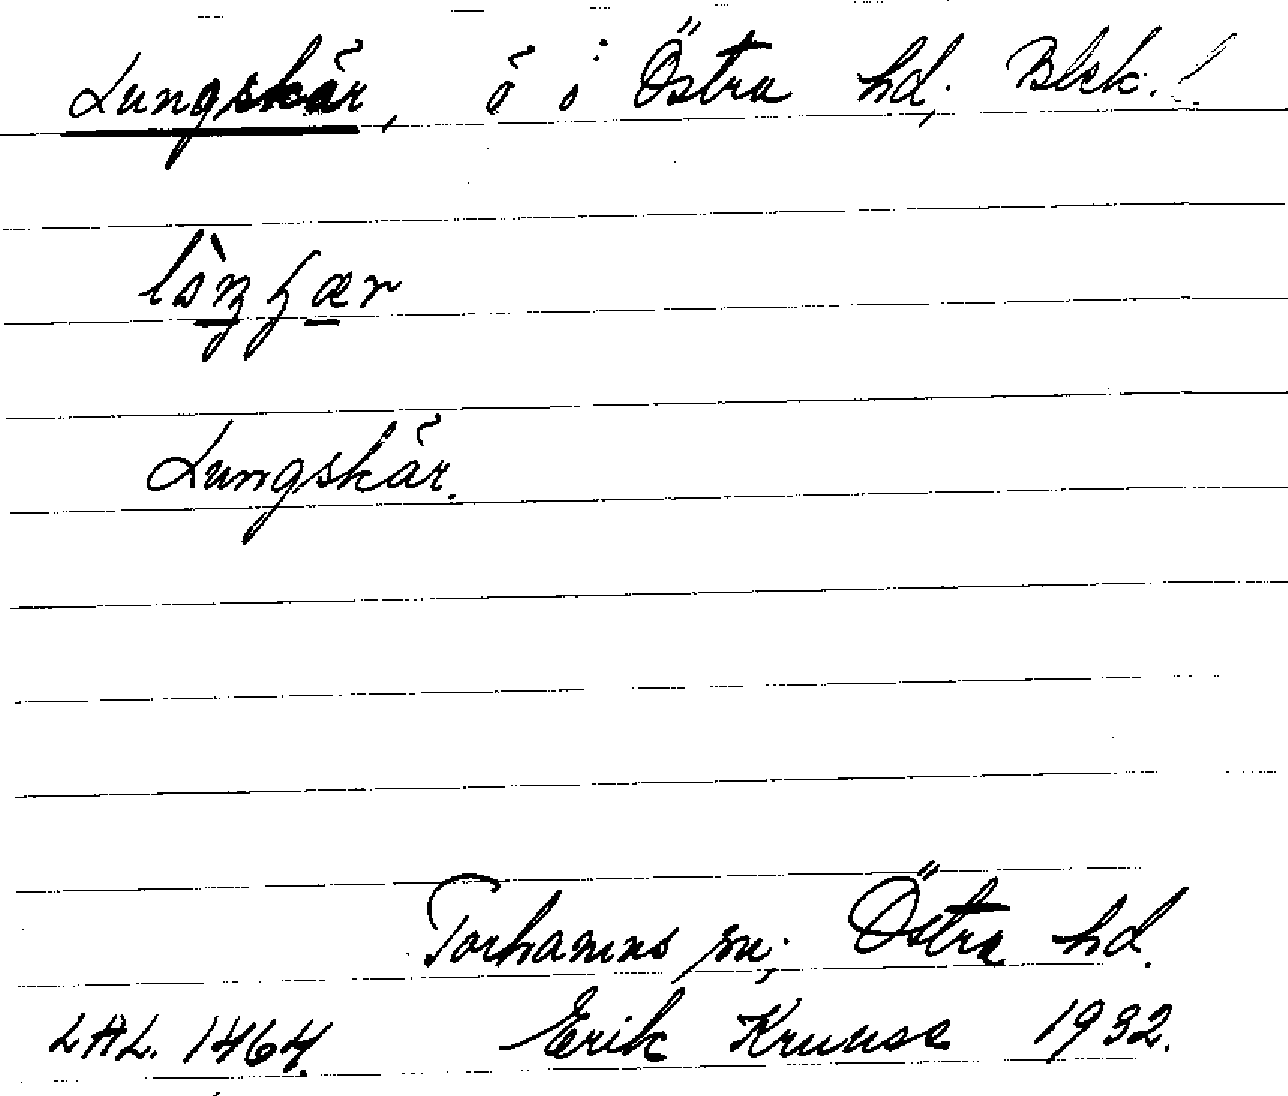 Lungskär, ö i Östra hd. Blek.!
Lungskär.
Torhamns sn, Östra hd.
LAL. 1464. Erik Kruuse 1932.